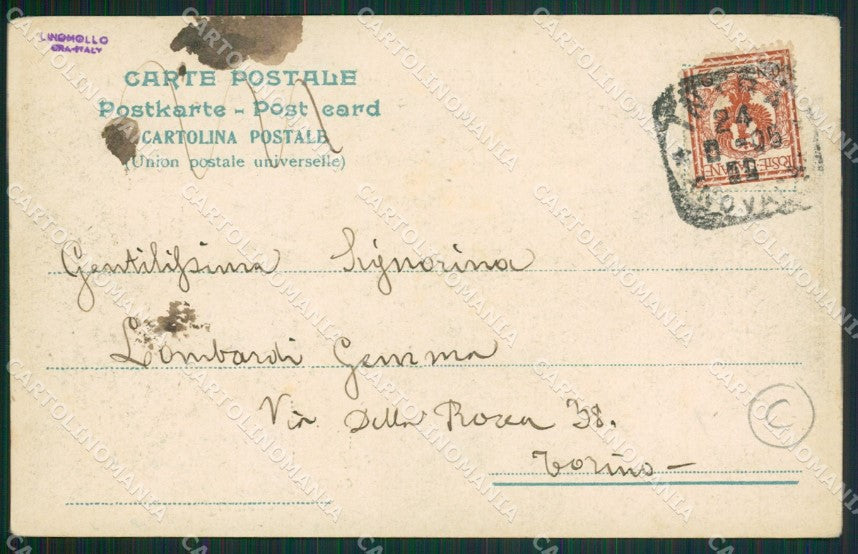 CARTE POSTALE
Postkarte - Post card
CARTOLINA POSTALE
(Union postale universelle)
24
Gentilissima Signorina
Lombardi Gemma
Via Della Rocca 38.
Torino -
C
CARTOLINOMANIA